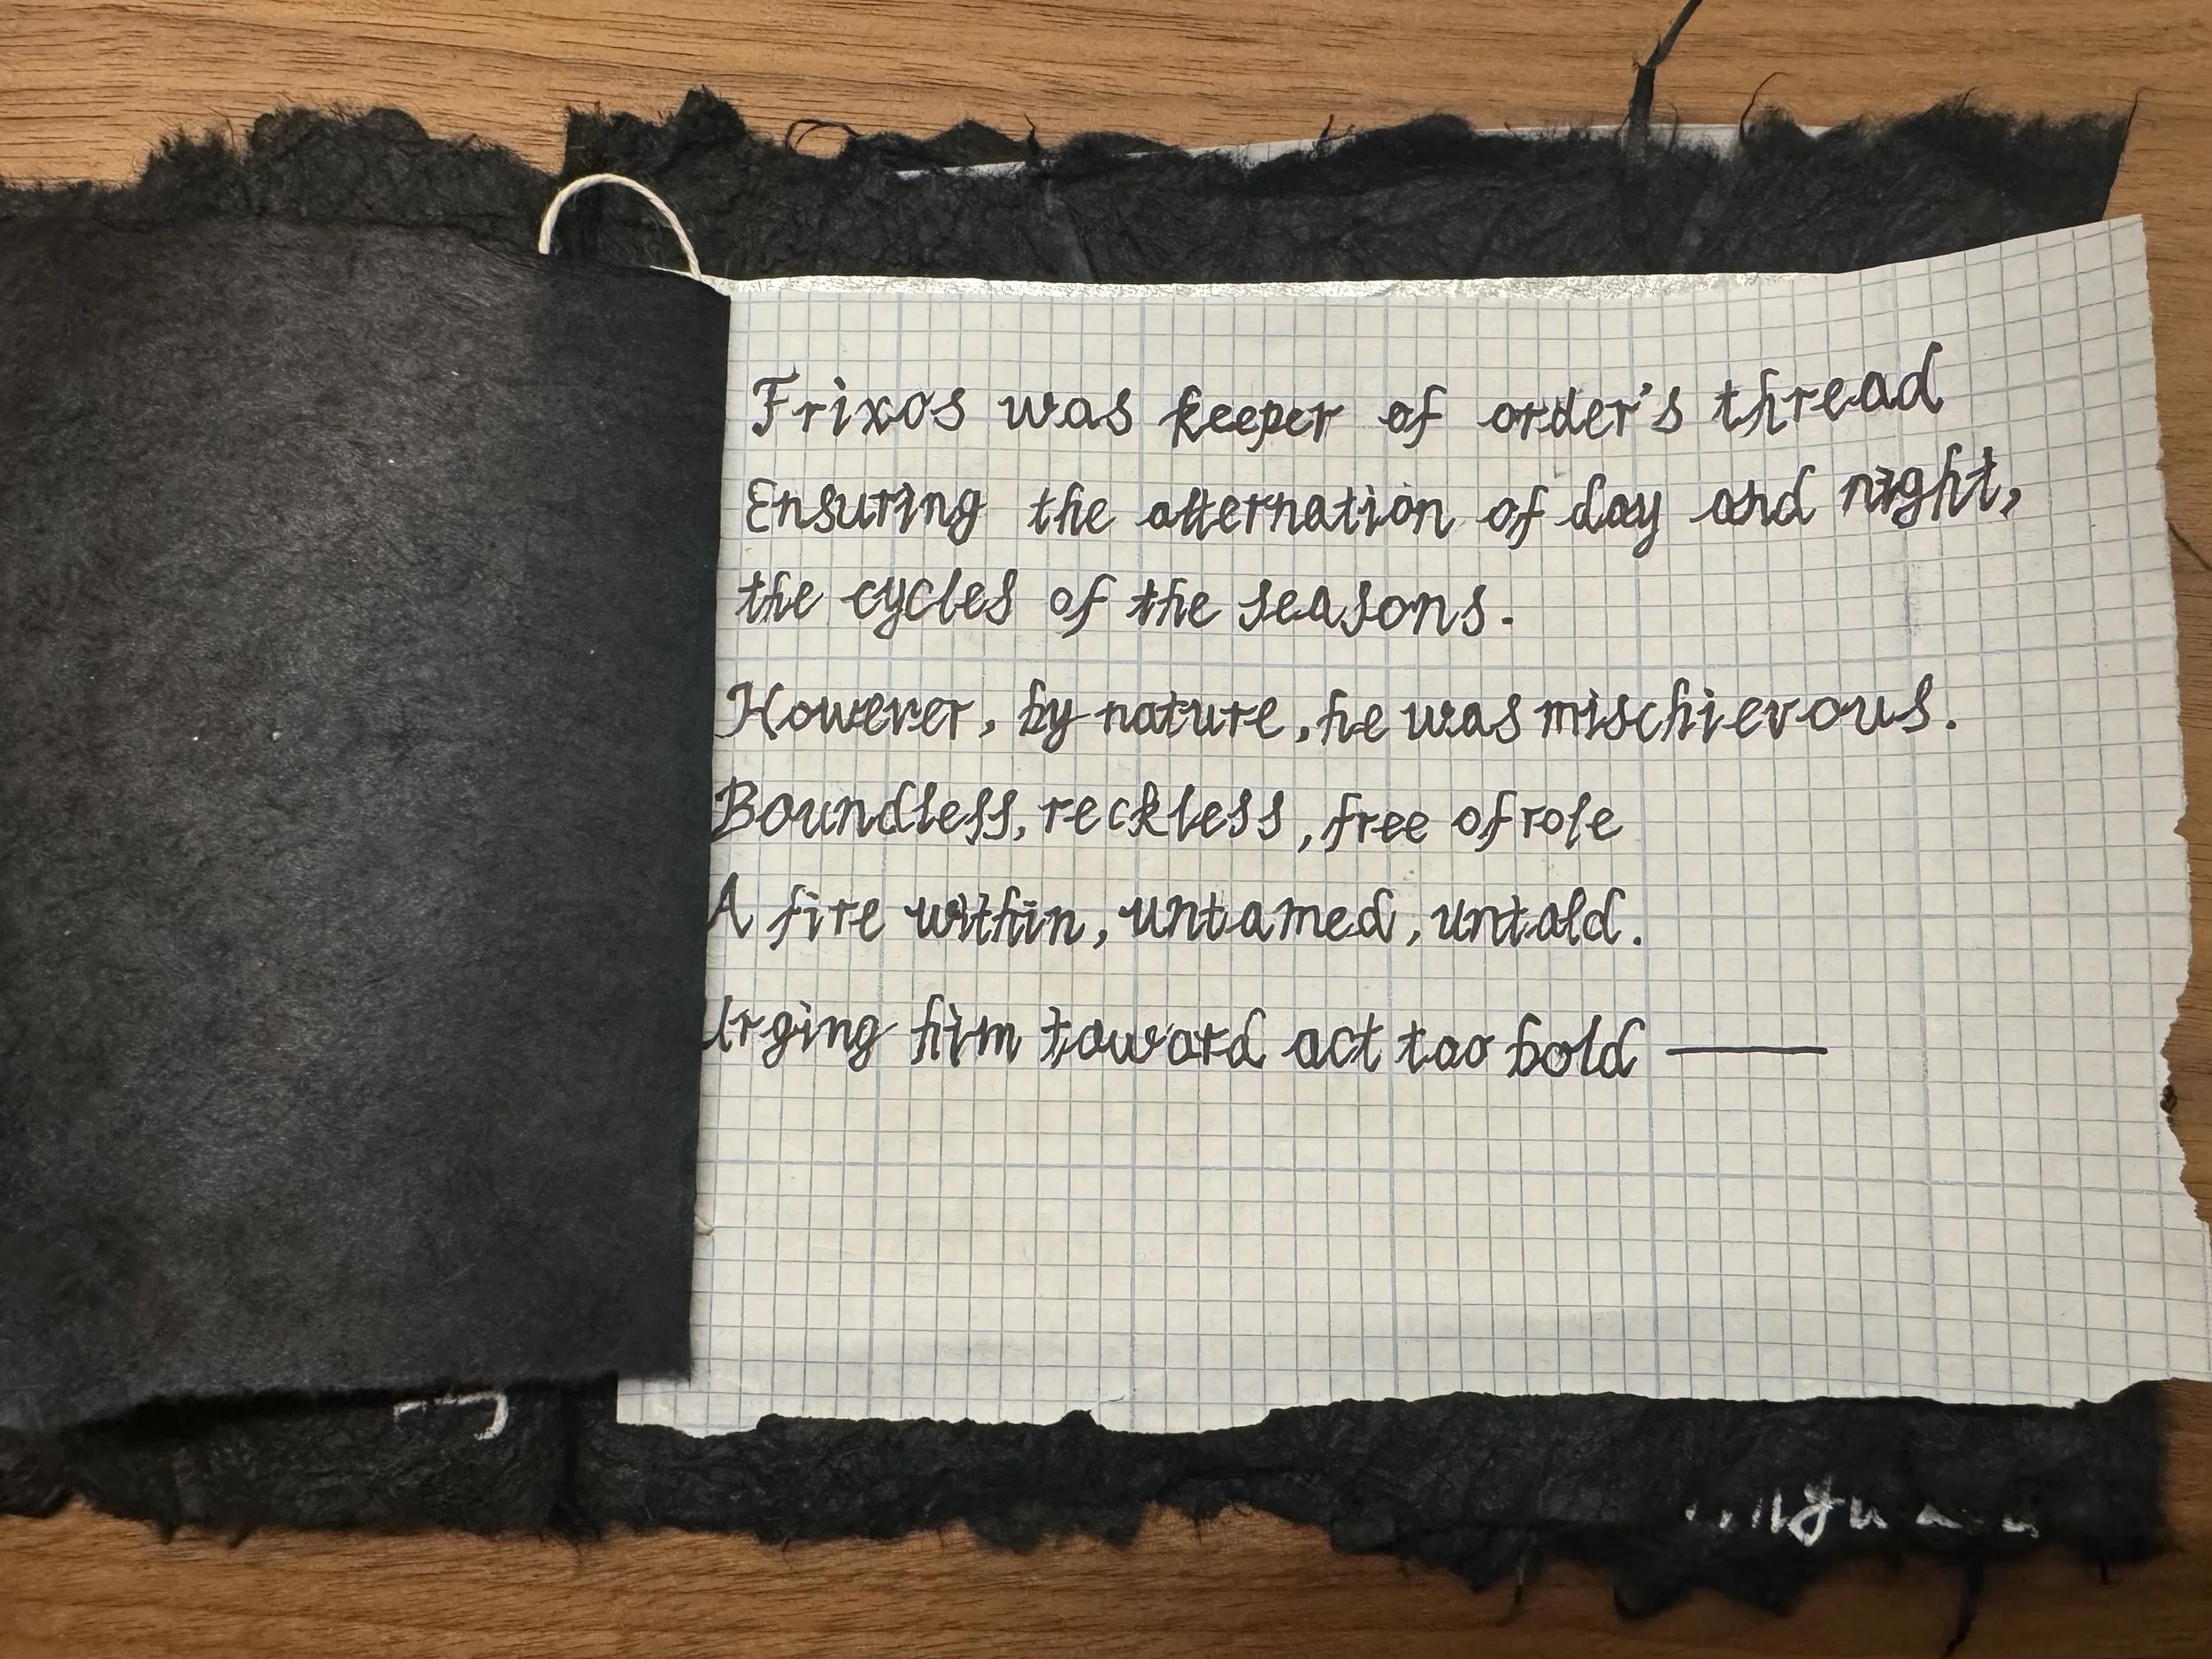 Frixos was keeper of order's thread
Ensuring the alternation of day and night,
the cycles of the seasons.
However, by nature, he was mischievous.
Boundless, reckless, free of role
A fire within, untamed, untold.
Urging him toward act too bold —